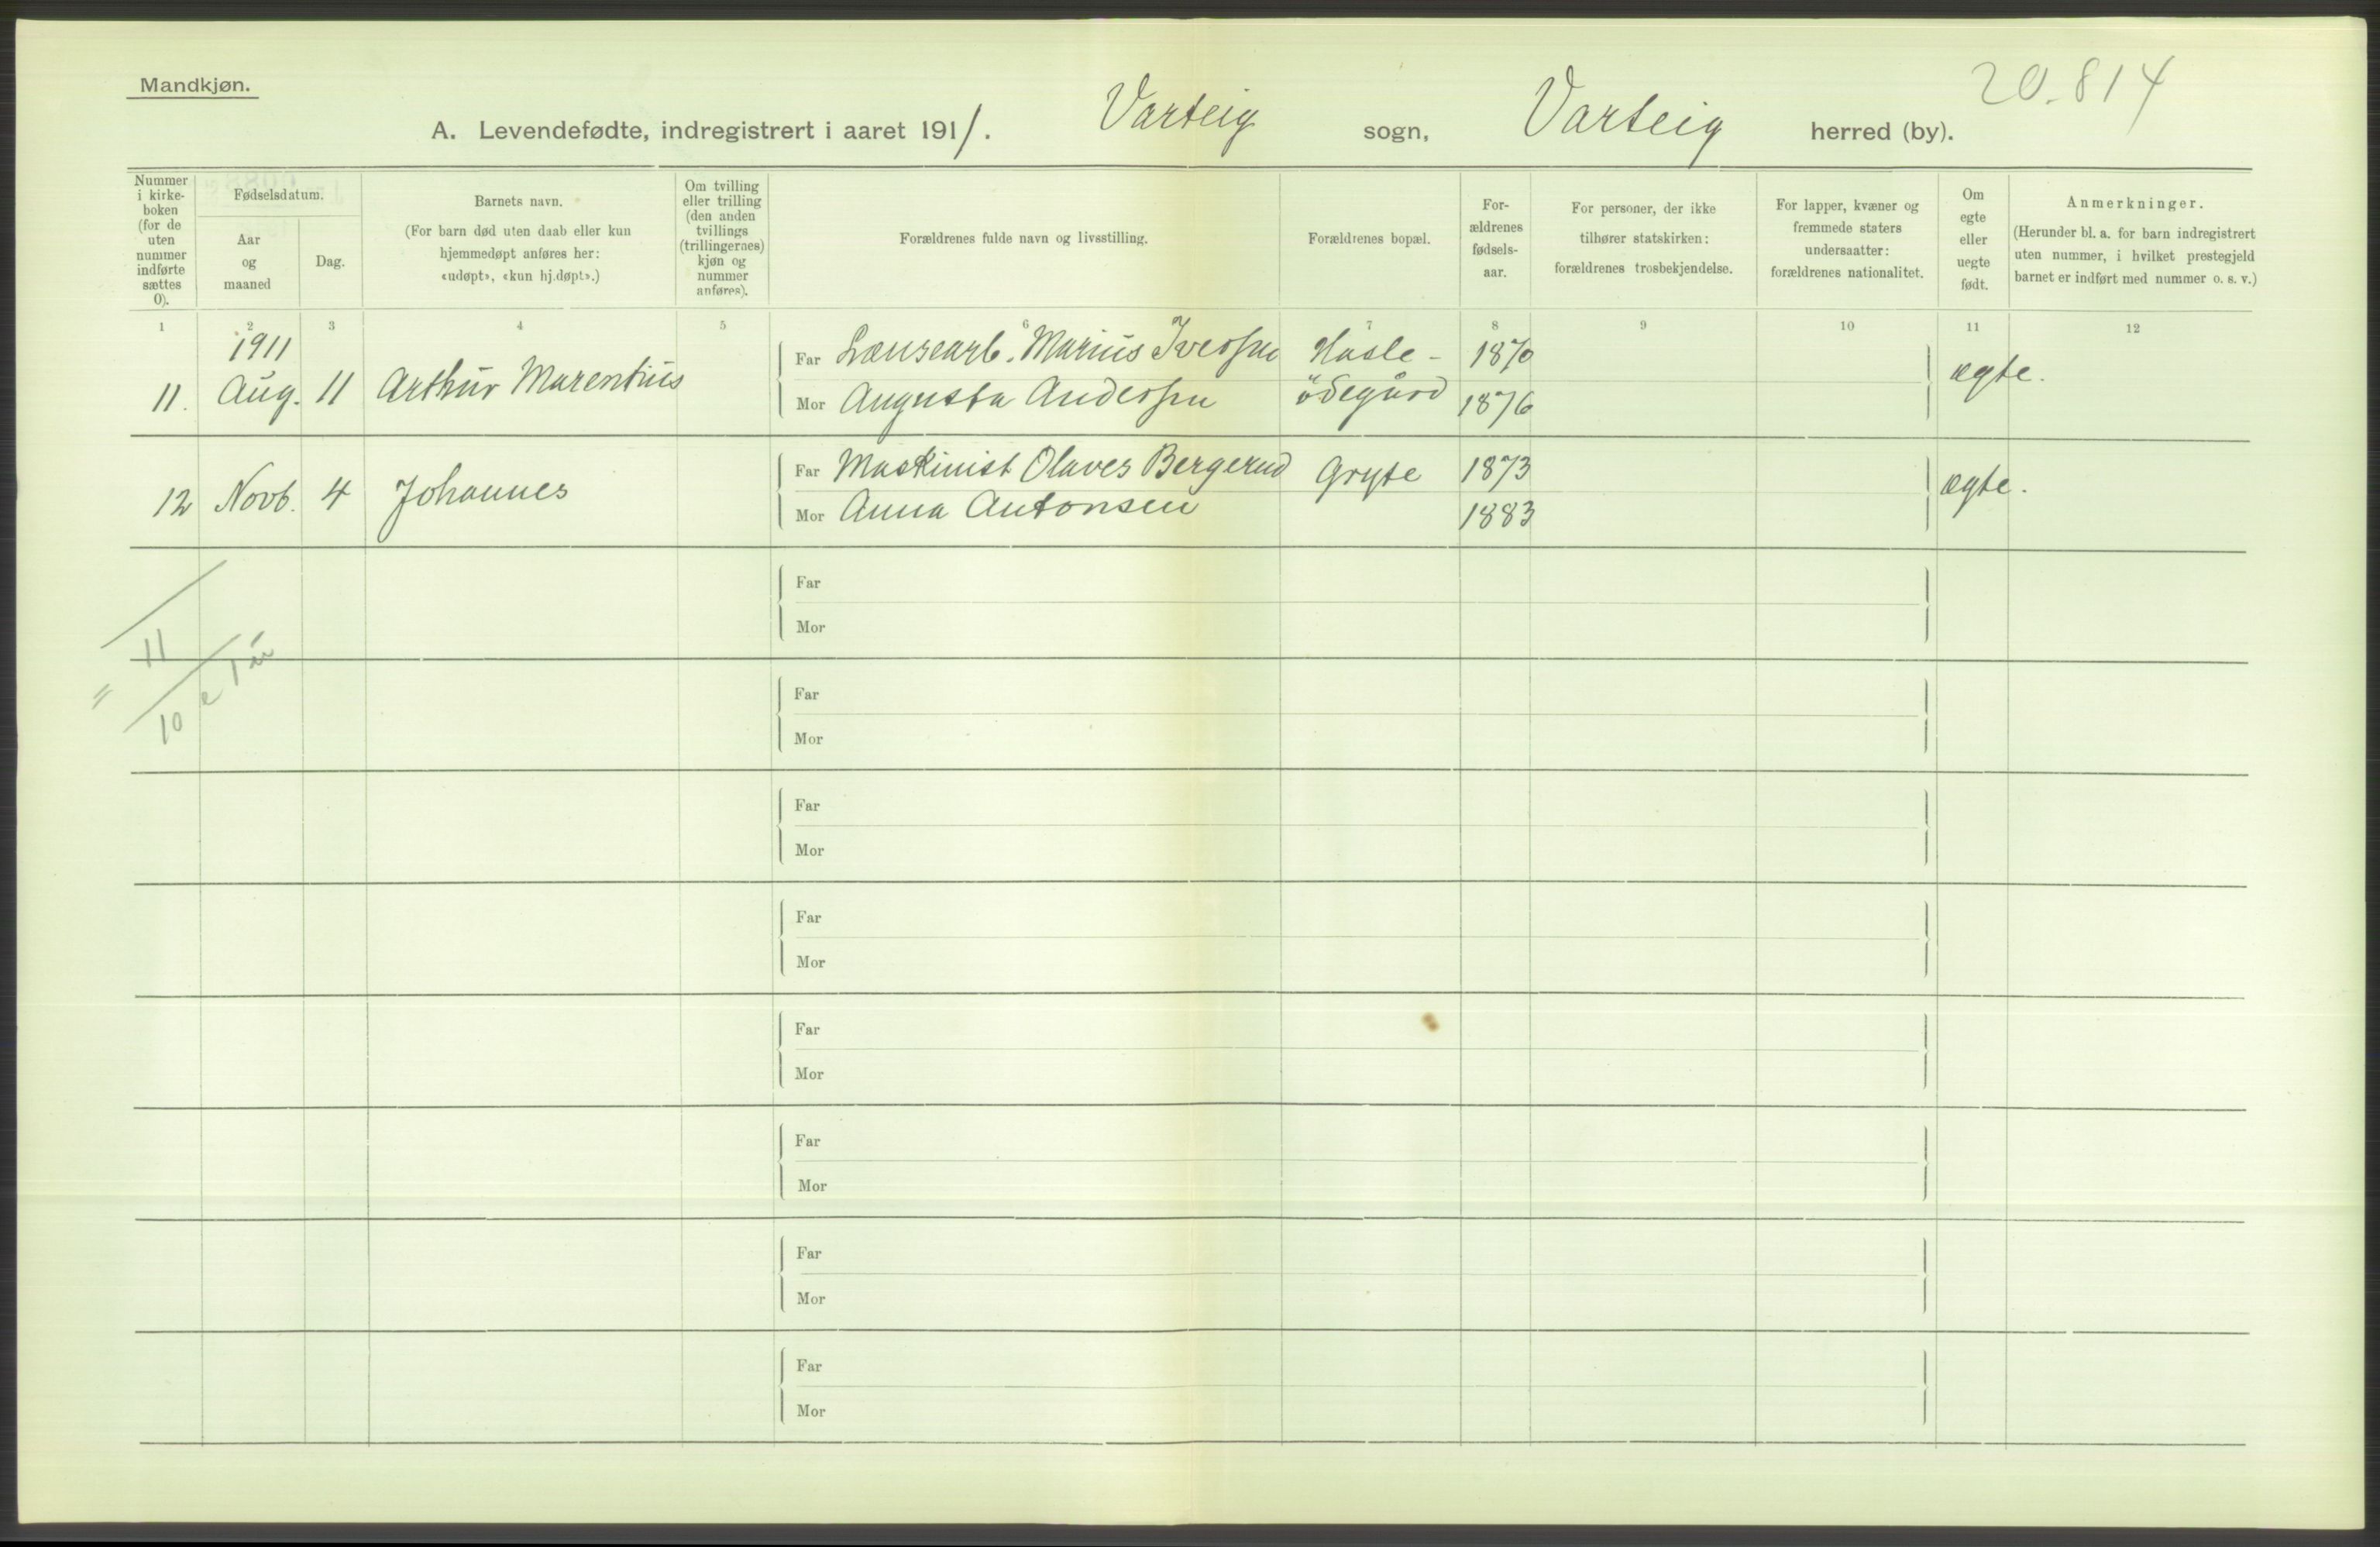 Mandkjøn.
20.814
A. Levendefødte, indregistrert i aaret 1911. Varteig sogn, Varteig herred (by).
Nummer i kirkeboken (for de uten nummer indførte sættes 0).
Fødselsdatum.
Aar og maaned
Dag.
Barnets navn.
(For barn død uten daab eller kun hjemmedøpt anføres her: «udøpt», «kun hj.døpt».)
Om tvilling eller trilling (den anden tvillings (trillingernes) kjøn og nummer anføres).
Forældrenes fulde navn og livsstilling.
Forældrenes bopæl.
Forældrenes fødselsaar.
For personer, der ikke tilhører statskirken: forældrenes trosbekjendelse.
For lapper, kvæner og fremmede staters undersaatter: forældrenes nationalitet.
Om egte eller uegte født.
Anmerkninger.
(Herunder bl. a. for barn indregistrert uten nummer, i hvilket prestegjeld barnet er indført med nummer o. s. v.)
1 2 3 4 5 6 7 8 9 10 11 12
1911
11. Aug. 11 Arthur Marentius Far Lænsearb. Marius Iversen Hasle- 1870 ægte.
Mor Augusta Andersen ödegård 1876
12 Novb. 4 Johannes Far Maskinist Olaves Bergerud Gryte 1873 ægte.
Mor Anna Antonsen 1883
Far
Mor
11
10
Far
Mor
Far
Mor
Far
Mor
Far
Mor
Far
Mor
Far
Mor
Far
Mor